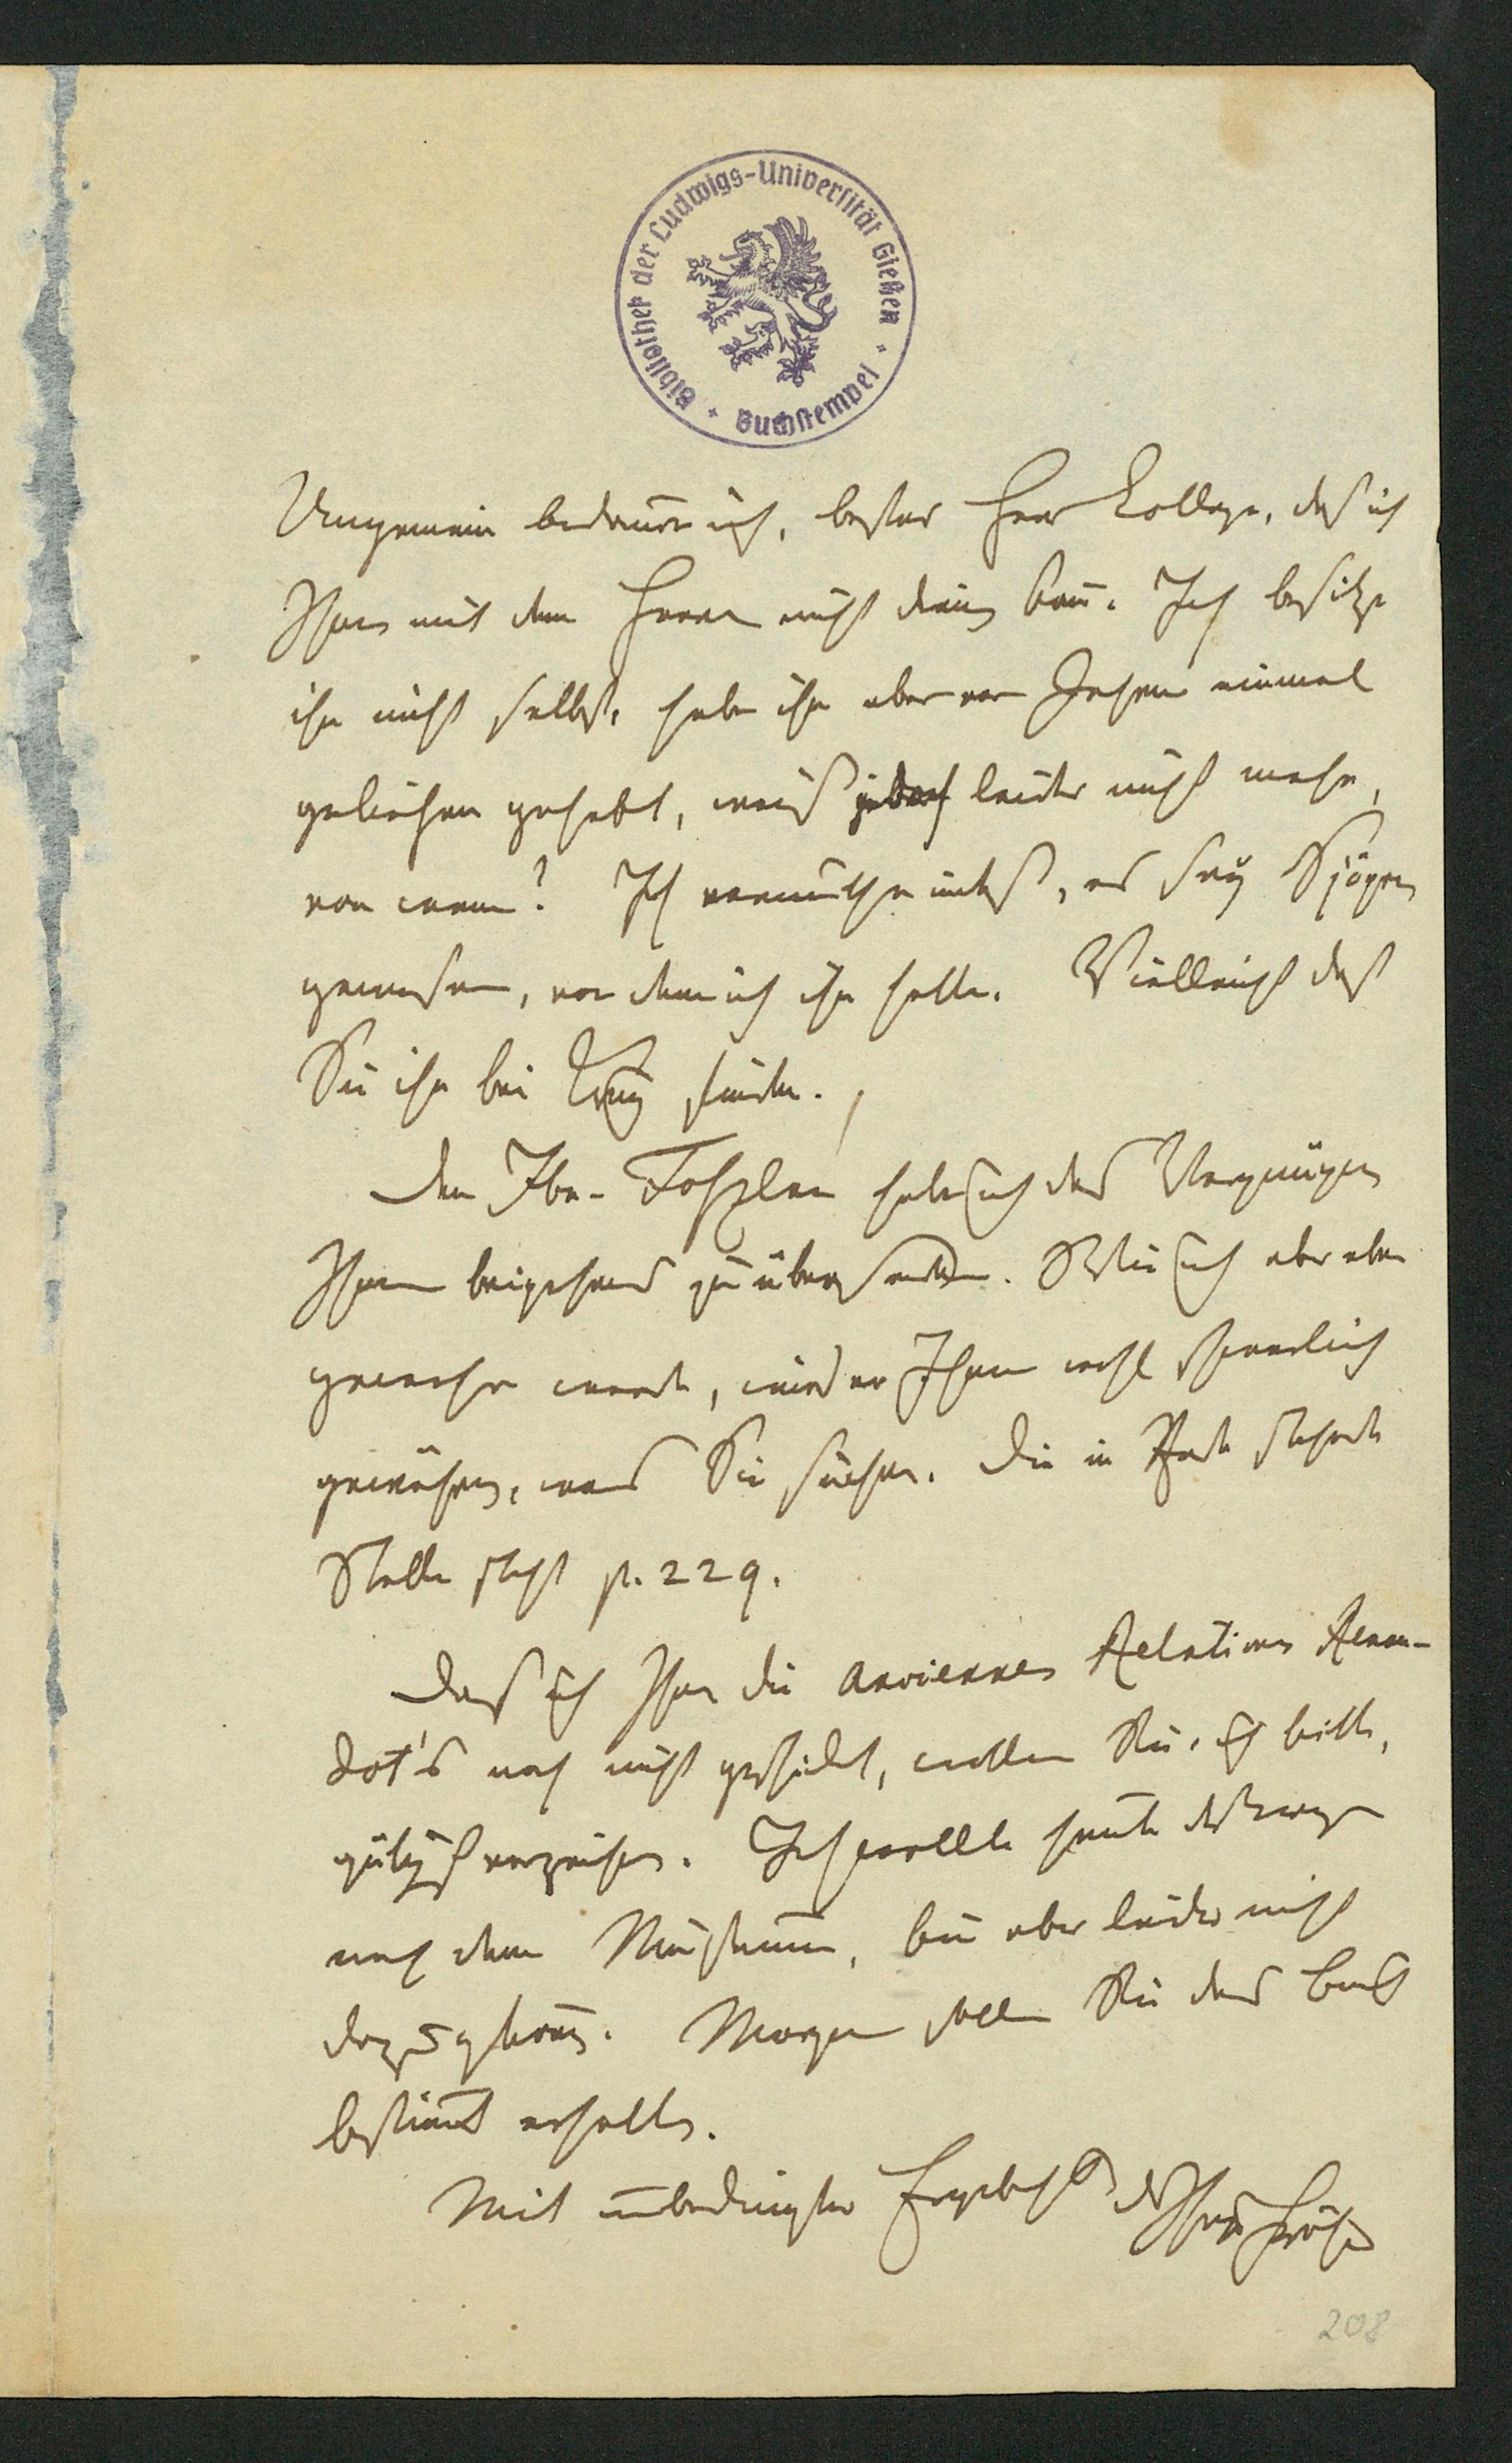 Bibliothek der Ludwigs-Universität Gießen
Buchstempel
Ungemein bedaure ich, bester Herr Kollege, daß ich
Ihnen mit dem nicht dienen kann. Ich besitze
ihn nicht selbst, habe ihn aber vor Jahren einmal
geliehen gehabt, weiß jedoch leider nicht mehr,
von wem? Ich vermuthe indeß, es sey Sjögren
gewesen, von dem ich ihn hatte. Vielleicht daß
Sie ihn bei Krug finden.
Den Ibn-Foszlan habe ich das Vergnügen
Ihnen beigehend zu übersenden. Wie ich aber eben
gewahr werde, wird er Ihnen wohl schwerlich
gewähren, was Sie suchen. Die in Rede stehende
Stelle steht p. 229.
Daß ich Ihnen die anciennes Relations Renau-
dot's noch nicht geschickt, wollen Sie, ich bitte,
gütigst verzeihen. Ich wollte heute deßwegen
nach dem Museum, bin aber leider nicht
dazu gekommen. Morgen sollen Sie das Buch
bestimmt erhalten.
Mit unbedingter Ergebenheit der Ihrige Frähn
208